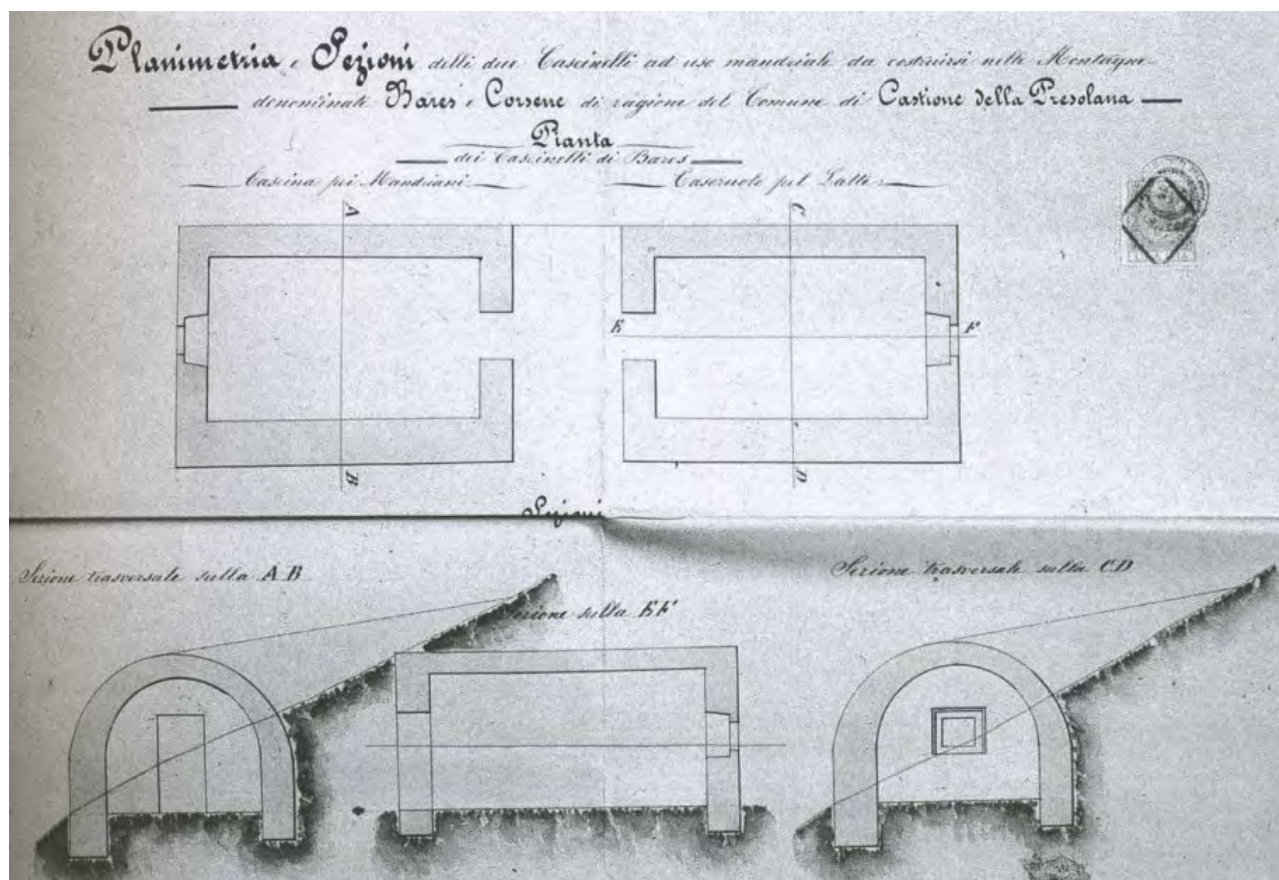 Planimetria e Sezioni delli due Cascinelli ad uso mandriale da costruirsi nelle Montagne
denominate Bares e Corsene di ragione del Comune di Castione della Presolana
Pianta
dei Cascinelli di Bares
Cascina pei Mandriani
Caseruolo pel Latte
A
C
E
F
B
D
Sezioni
Sezione trasversale sulla A B
Sezione sulla E F
Sezione trasversale sulla C D